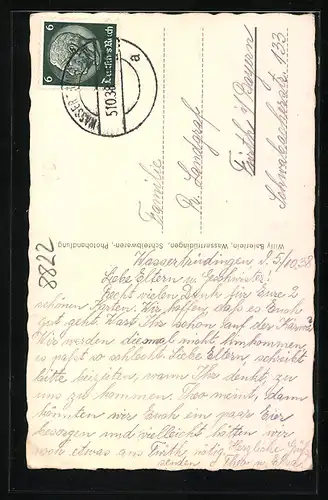 6 6
Deutsches Reich
WASSERTRÜDINGEN
5.10.38
a
Familie
K. Landgraf
Fürth i/Bayern
Schwabacherstr. 133
Willy Beierlein, Wassertrüdingen, Schreibwaren, Photohandlung
8822
Wassertrüdingen d. 5/10.38
Liebe Eltern u. Geschwister!
Habt vielen Dank für Eure 2
schönen Karten. Wir hoffen, daß es Euch
gut geht. Wart Ihr schon auf der
Wir werden diesmal nicht hinkommen,
es paßt so schlecht. Liebe Eltern, schreibt
bitte beizeiten, wann Ihr denkt, zu
uns zu kommen. Theo meint, dann
könnten wir Euch ein paar Eier
besorgen und vielleicht hätten wir
noch etwas aus Fürth nötig. Herzliche Grüße
senden Theo u.